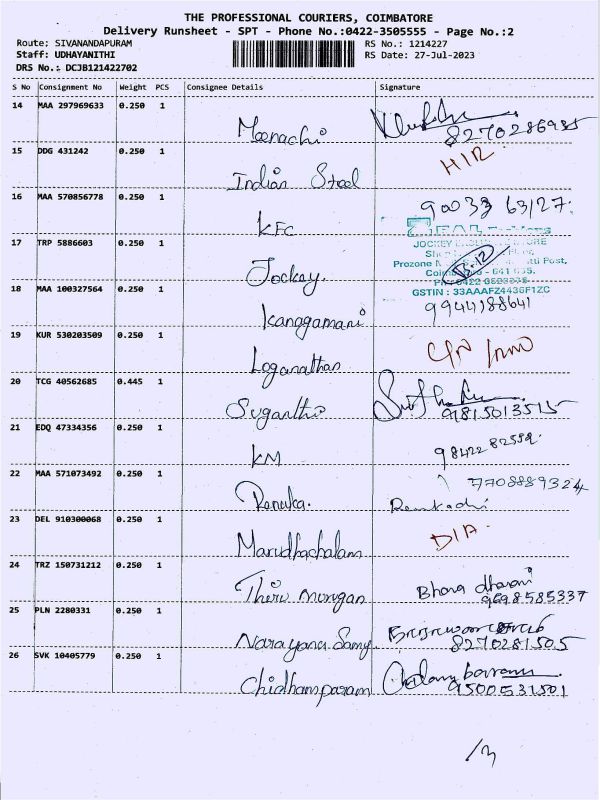 THE PROFESSIONAL COURIERS, COIMBATORE
Delivery Runsheet - SPT - Phone No.:0422-3505555 - Page No.:2
Route: SIVANANDAPURAM
Staff: UDHAYANITHI
DRS No.: DCJB121422702
RS No.: 1214227
RS Date: 27-Jul-2023
S No Consignment No Weight PCS Consignee Details Signature
14 MAA 297969633 0.250 1
Meenachi 8270286985
15 DDG 431242 0.250 1
Indian Steel
16 MAA 570856778 0.250 1
KFC 90033 63127
17 TRP 5886603 0.250 1
Jockey
18 MAA 100327564 0.250 1
GSTIN : 33AAAFZ4436F1ZC
Kanagamani 9944188641
19 KUR 530203509 0.250 1
Loganathan
20 TCG 40562685 0.445 1
Suganthi 9815013515
21 EDQ 47334356 0.250 1
KM 98422 82552
22 MAA 571073492 0.250 1
Renuka. 7708889324
23 DEL 910300068 0.250 1
Marudhachalam
24 TRZ 150731212 0.250 1
Thiru Murugan Bhara dharani
9698585337
25 PLN 2280331 0.250 1
Narayana Samy
8270281505
26 SVK 10405779 0.250 1
Chidhamparam
9500531501
/3